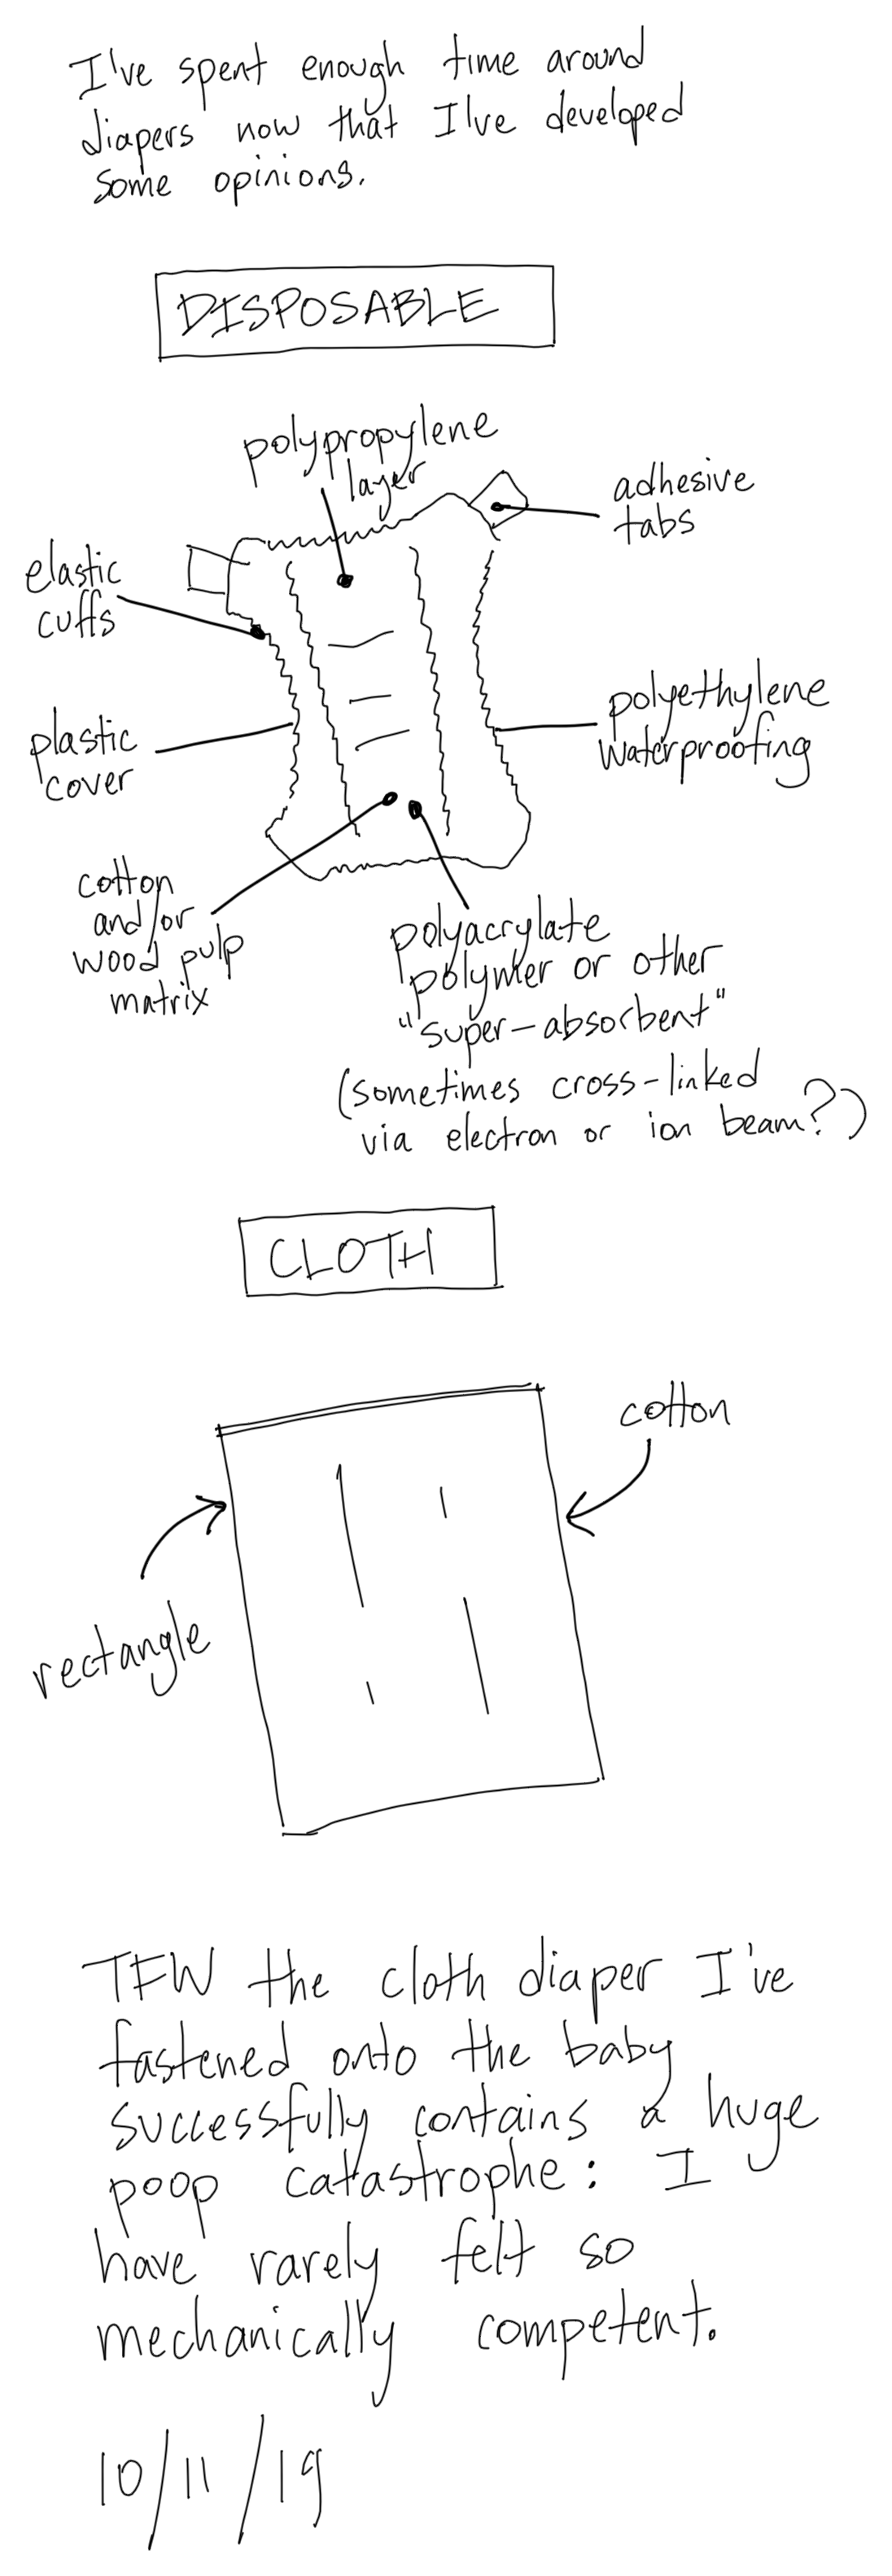 I've spent enough time around
diapers now that I've developed
some opinions.
DISPOSABLE
polypropylene
layer
adhesive
tabs
elastic
cuffs
plastic
cover
polyethylene
waterproofing
cotton
and/or
wood pulp
matrix
polyacrylate
polymer or other
"super-absorbent"
(sometimes cross-linked
via electron or ion beam?)
CLOTH
cotton
rectangle
TFW the cloth diaper I've
fastened onto the baby
successfully contains a huge
poop catastrophe: I
have rarely felt so
mechanically competent.
10/11/19